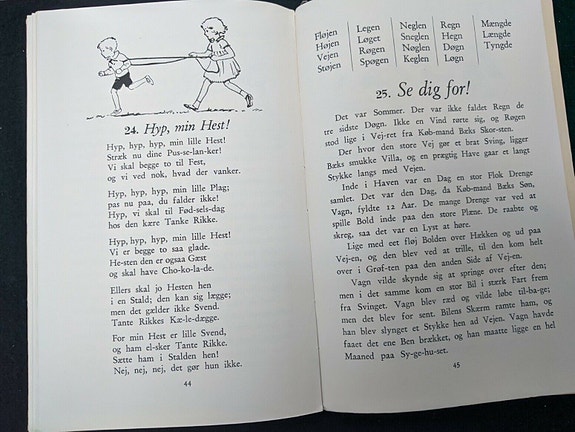 24. Hyp, min Hest!
Hyp, hyp, hyp, min lille Hest!
Stræk nu dine Pus-se-lan-ker!
Vi skal begge to til Fest,
og vi ved nok, hvad der vanker.
Hyp, hyp, hyp, min lille Plag;
pas nu paa, du falder ikke!
Hyp, vi skal til Fød-sels-dag
hos den kære Tanke Rikke.
Hyp, hyp, hyp, min lille Hest!
Vi er begge to saa glade.
He-sten den er ogsaa Gæst
og skal have Cho-ko-la-de.
Ellers skal jo Hesten hen
i en Stald; den kan sig lægge;
men det gælder ikke Svend.
Tante Rikkes Kæ-le-dægge.
For min Hest er lille Svend,
og ham el-sker Tante Rikke.
Sætte ham i Stalden hen!
Nej, nej, nej, det gør hun ikke.
44
Fløjen Legen Neglen Regn Mængde
Højen Løget Sneglen Hegn Længde
Vejen Røgen Nøglen Døgn Tyngde
Støjen Spøgen Keglen Løgn
25. Se dig for!
Det var Sommer. Der var ikke faldet Regn de
tre sidste Døgn. Ikke en Vind rørte sig, og Røgen
stod lige i Vej-ret fra Køb-mand Bæks Skor-sten.
Der hvor den store Vej gør et brat Sving, ligger
Bæks smukke Villa, og en prægtig Have gaar et langt
Stykke langs med Vejen.
Inde i Haven var en Dag en stor Flok Drenge
samlet. Det var den Dag, da Køb-mand Bæks Søn,
Vagn, fyldte 12 Aar. De mange Drenge var ved at
spille Bold inde paa den store Plæne. De raabte og
skreg, saa det var en Lyst at høre.
Lige med eet fløj Bolden over Hækken og ud paa
Vej-en, og den blev ved at trille, til den kom helt
over i Grøf-ten paa den anden Side af Vej-en.
Vagn vilde skynde sig at springe over efter den;
men i det samme kom en stor Bil i stærk Fart frem
fra Svinget. Vagn blev ræd og vilde løbe til-ba-ge;
men det blev for sent. Bilens Skærm ramte ham, og
han blev slynget et Stykke hen ad Vejen. Vagn havde
faaet det ene Ben brækket, og han maatte ligge en hel
Maaned paa Sy-ge-hu-set.
45